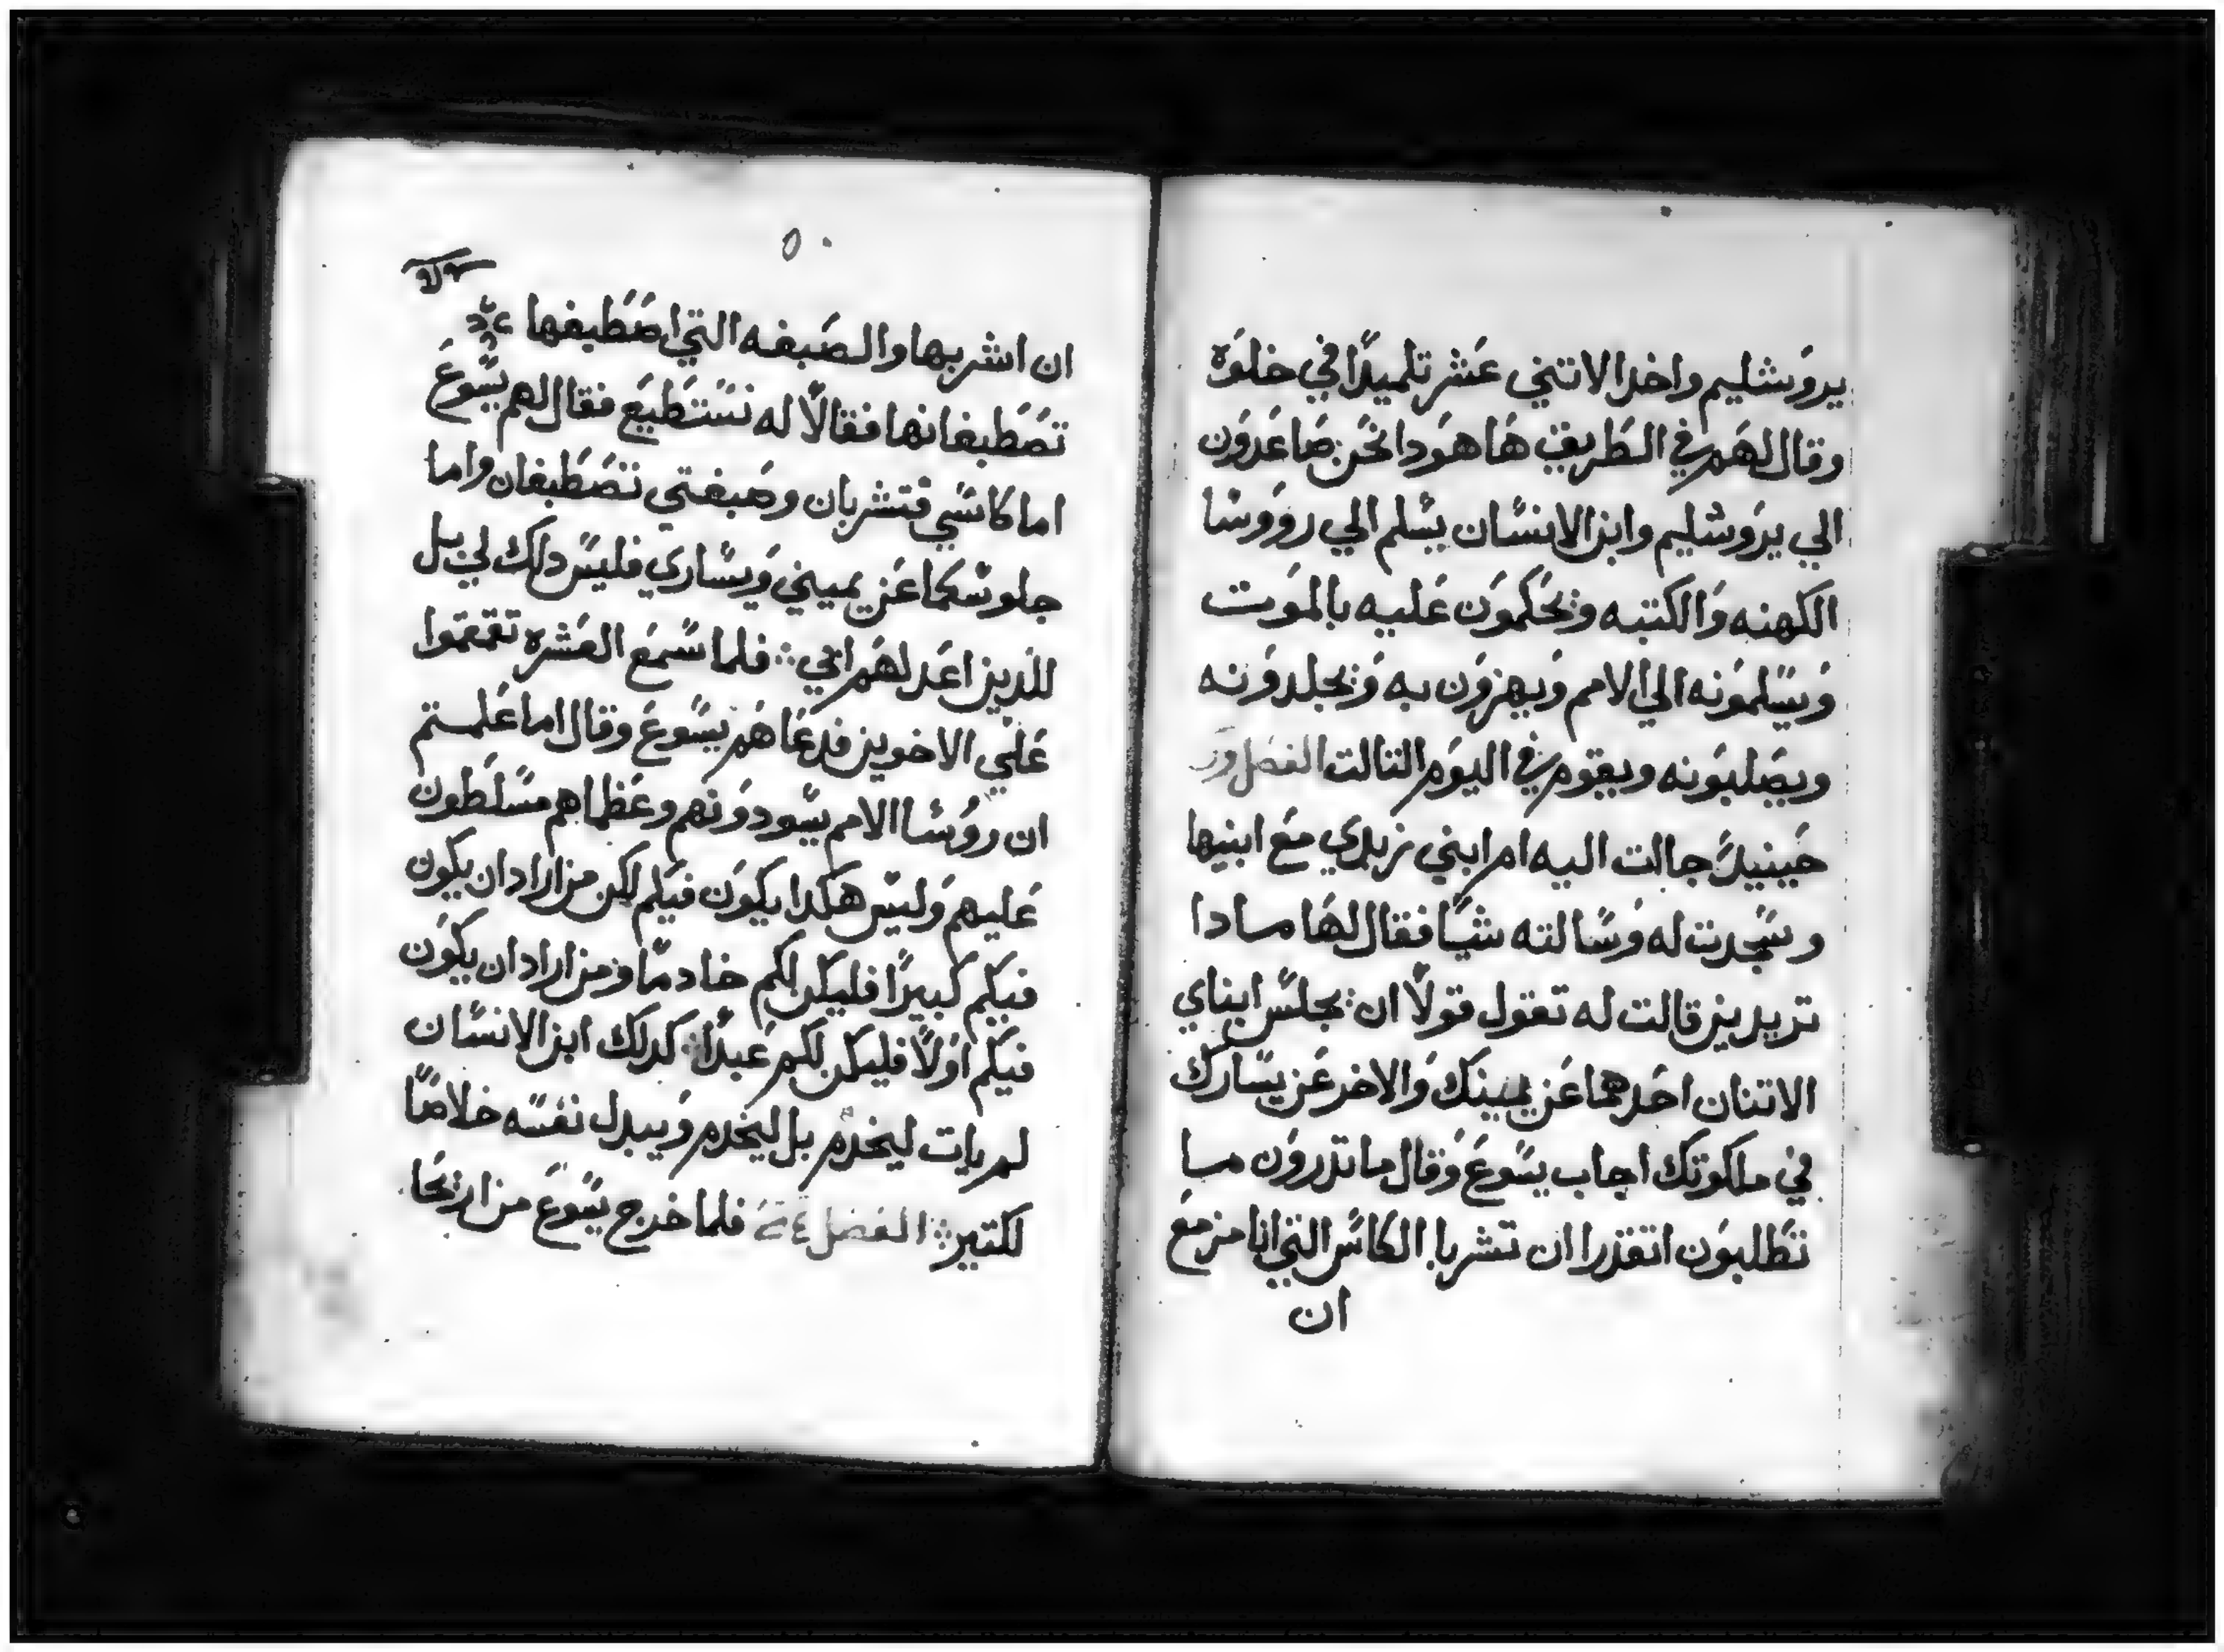 يروشليم واخد الاتني عشر تلميدًا في خلوه
وقال لهم في الطريق ها هودا نحن صاعدون
الي يروشليم وابن الانسان يسلم الي رووسا
الكهنه والكتبه ويحكمون عليه بالموت
ويسلمونه الي الامم ويهزون به ويجلدونه
ويصلبونه ويقوم في اليوم التالت الفصل
حينيدً جاات اليه ام ابني زبدي مع ابنيها
وسجدت له وسالته شيًا فقال لها مادا
تريدين قالت له تقول قولًا ان يجلس ابناي
الاتنان احدهما عن يمينك والاخر عن يسارك
في ملكوتك اجاب يسوع وقال ما تدرون ما
تطلبون اتقدرا ان تشربا الكاس التي انا مزمع
ان
٥٠
ان اشربها والصبغه التي اصطبغها
تصطبغانها فقالا له نستطيع فقال لهم يسوع
اما كاسي فتشربان وصبغتي تصطبغان واما
جلوسكما عن يميني ويساري فليس دلك لي بل
للدين اعد لهم ابي فلما سمع العشره تقمقموا
علي الاخوين فدعاهم يسوع وقال اما علمتم
ان روسا الامم يسودونهم وعظماهم مسلطون
عليهم وليس هكدا يكون فيكم لكن من اراد ان يكون
فيكم كبيرًا فليكن لكم خادمًا ومن اراد ان يكون
فيكم اولًا فليكن لكم عبدًا كدلك ابن الانسان
لم يات ليخدم بل ليخدم ويبدل نفسه خلاصًا
لكتير الفصل فلما خرج يسوع من اريحا